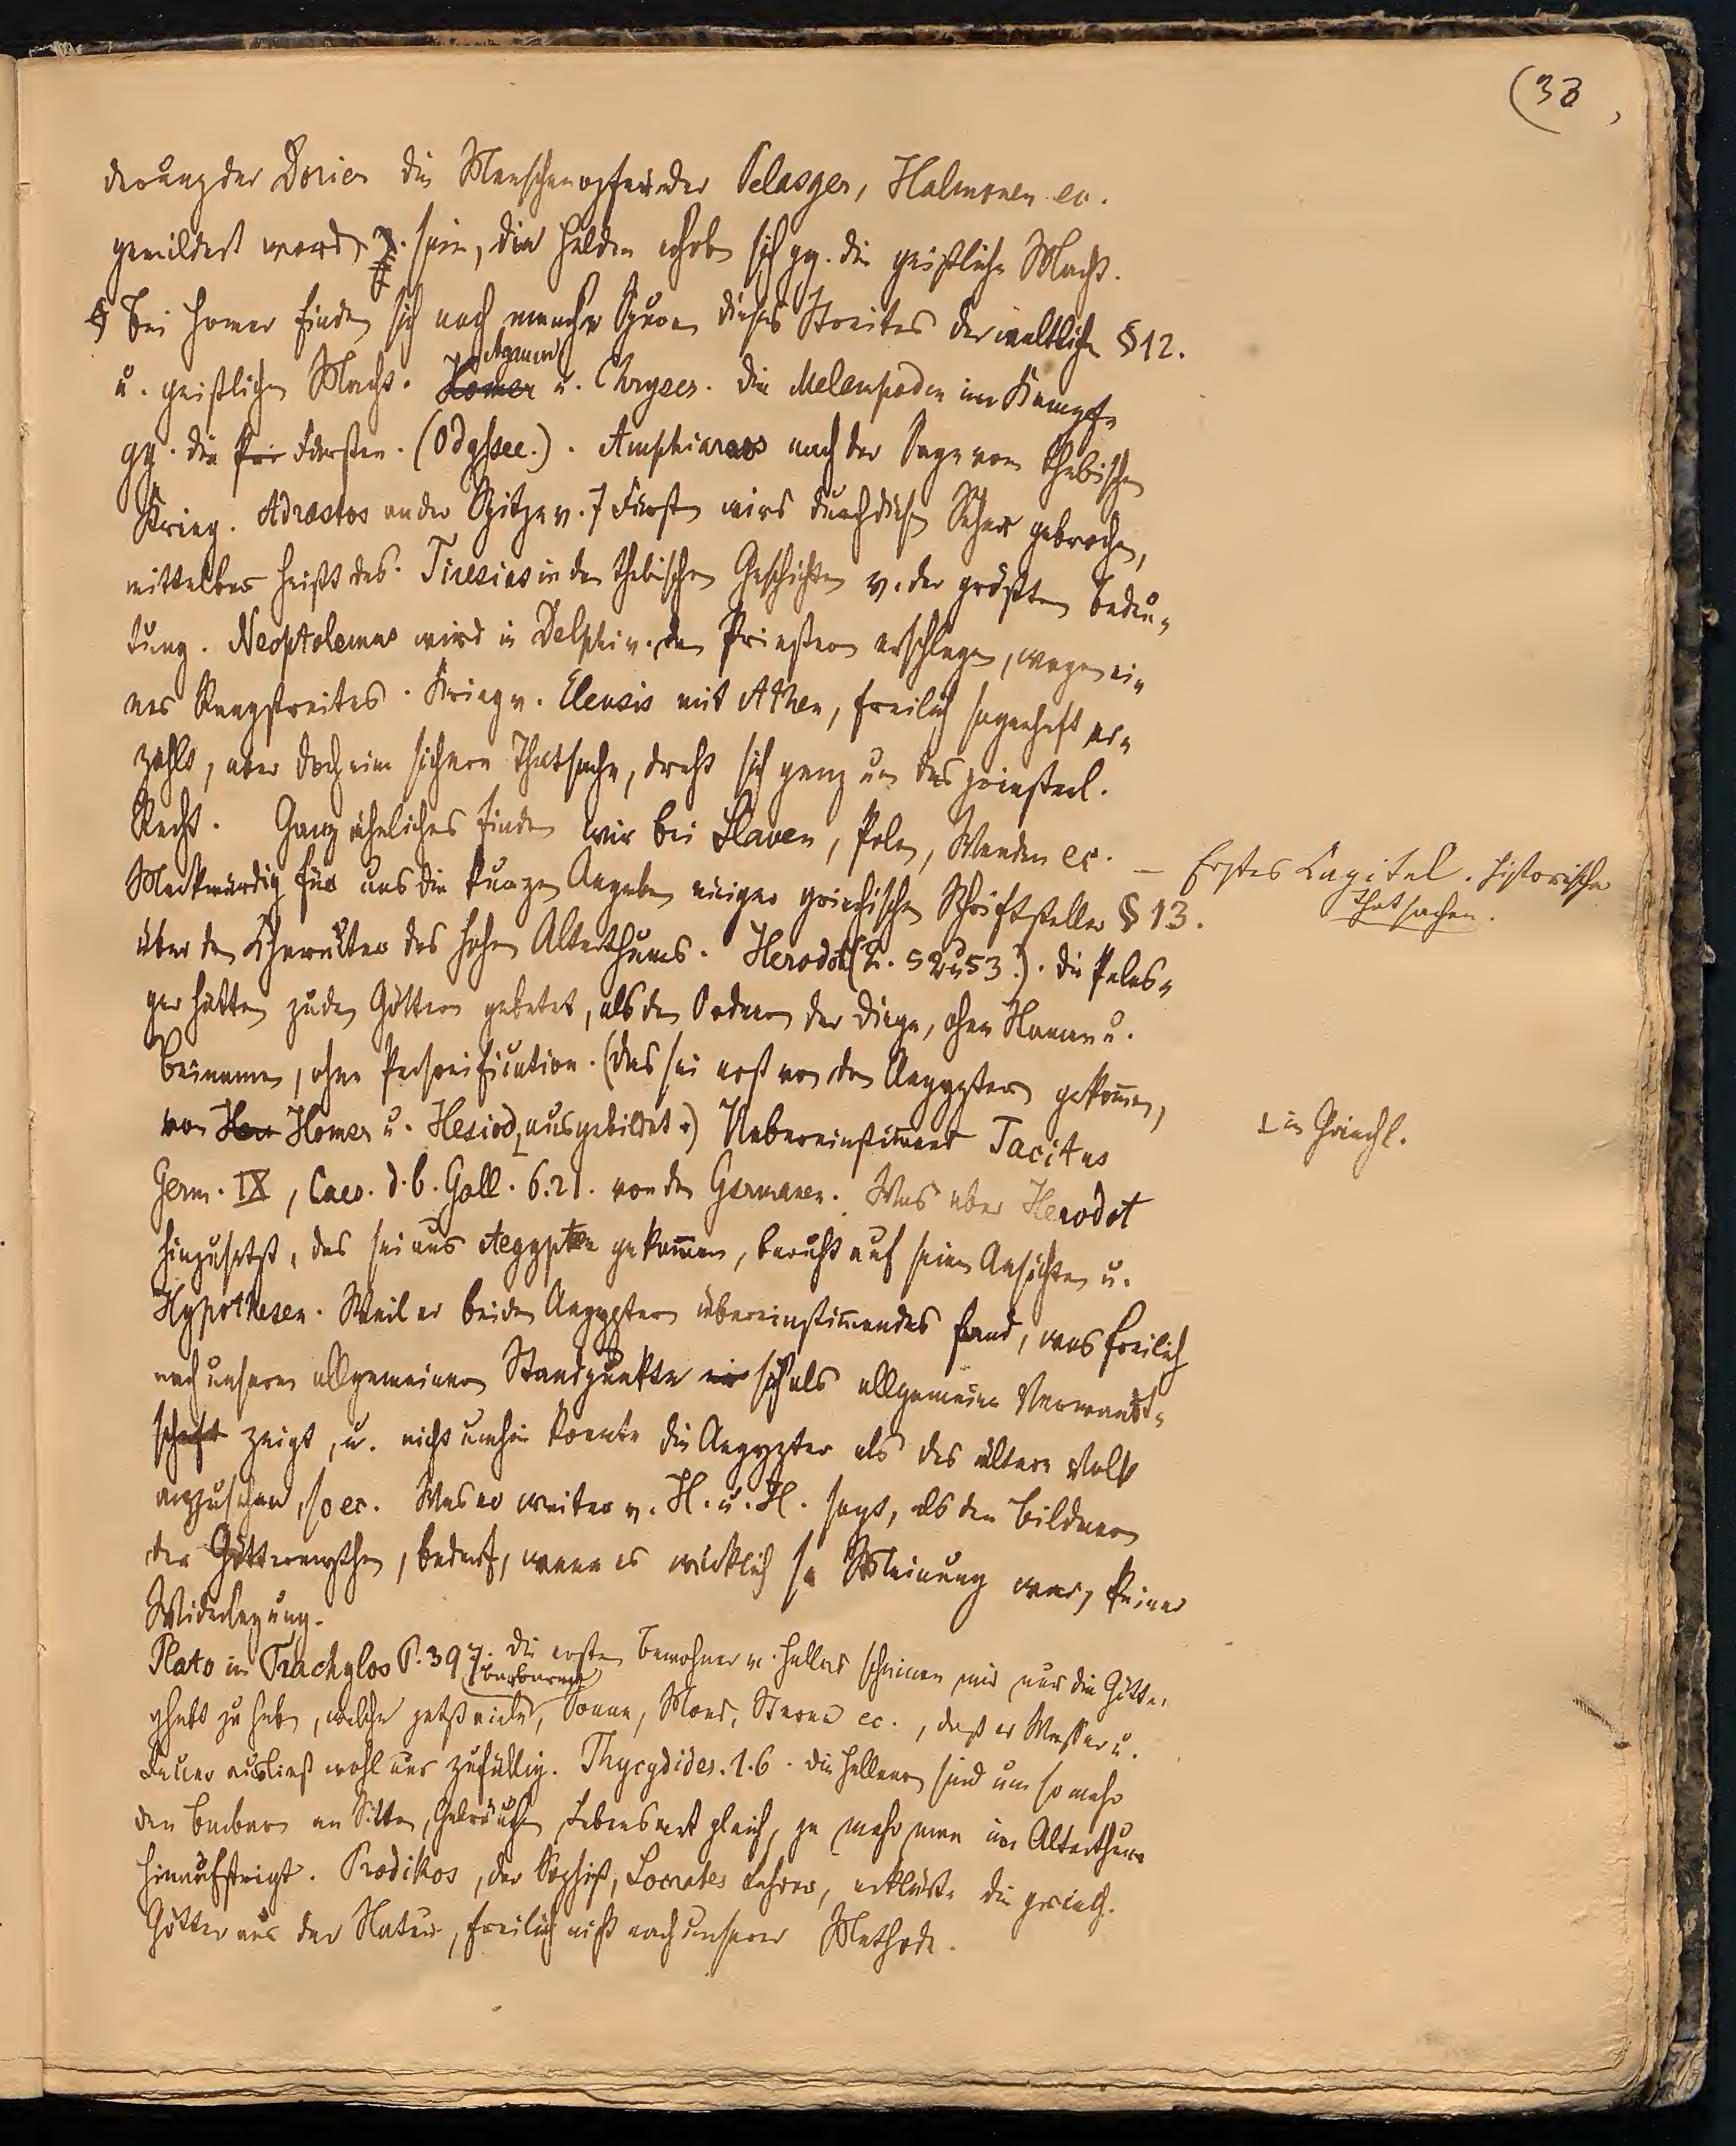 (38,
derung der Dorier die Menschenopfer der Pelasger, Halmonen ec.
gemildert word. z. sein, die Helden erhoben sich gg. die geistliche Macht.
Bei Homer finden sich noch manche Spuren dieses Streites der weltlichen § 12.
u. geistlichen Macht. Homer Agamem u. Chryses. Die Melampoden im Kampfe
gg. die Pri Fürsten. (Odyssee.). Amphiaraos nach der Sage vom thebischen
Krieg. Adrastos an der Spitze v. 7 Fürsten wird durch diesen Seher gebrochen,
mittelbar heißt das. Tiresias in den thebischen Geschichten v. der größten Bedeu-
tung. Neoptolemus wird in Delphi v. den Priestern erschlagen, wegen ei-
nes Rangstreites. Krieg v. Eleusis mit Athen, freilich sagenhaft er-
zählt, aber doch eine sichere Thatsache, dreht sich ganz um das priesterl.
Recht. Ganz ähnliches finden wir bei Slaven, Polen, Wenden ec. —
Erstes Capitel. Historische
Thatsachen.
Merkwürdig für uns die kurzen Angaben einiger griechischen Schriftsteller § 13.
über den Charakter des hohen Alterthums. Herodot (2. 52 u 53.). Die Pelas-
ger hätten zu den Göttern gebetet, als den Ordnern der Dinge, ohne Namen u.
Beinamen, ohne Personification. (Das sei erst von den Aegyptern gekommen,
von Her Homer u. Hesiod ausgebildet.) Uebereinstimmend Tacitus
in Griechl.
Germ. IX, Caes. d. b. Gall. 6. 21. von den Germanen. Was aber Herodot
hinzusetzt, das sei aus Aegypten gekommen, beruht auf seinen Ansichten u.
Hypothesen. Weil er bei den Aegyptern übereinstimmendes fand, was freilich
nach unserem allgemeinen Standpunkte sich als allgemeine Verwandt-
schaft zeigt, u. nicht umhin konnte die Aegypter als das ältere Volk
anzusehen, so ec. Was er weiter v. H. u. H. sagt, als den Bildnern
der Göttermythen, bedarf, wenn es wirklich se Meinung war, keiner
Widerlegung.
Plato in Crachylos P. 397. Die ersten Bewohner v. Hellas scheinen mir nur die Götter
gehabt zu haben, welche jetzt viele barbaren, Sonne, Mond, Sterne ec., daß er Wasser u.
Feuer ausließ wohl nur zufällig. Thycydides. 1. 6. Die Hellenen sind um so mehr
den Barbaren an Sitten, Gebräuchen, Lebensart gleich, je mehr man im Alterthum
hinaufsteigt. Prodikos, der Sophist, Socrates Lehrer, erklärte die griech.
Götter aus der Natur, freilich nicht nach unserer Methode.